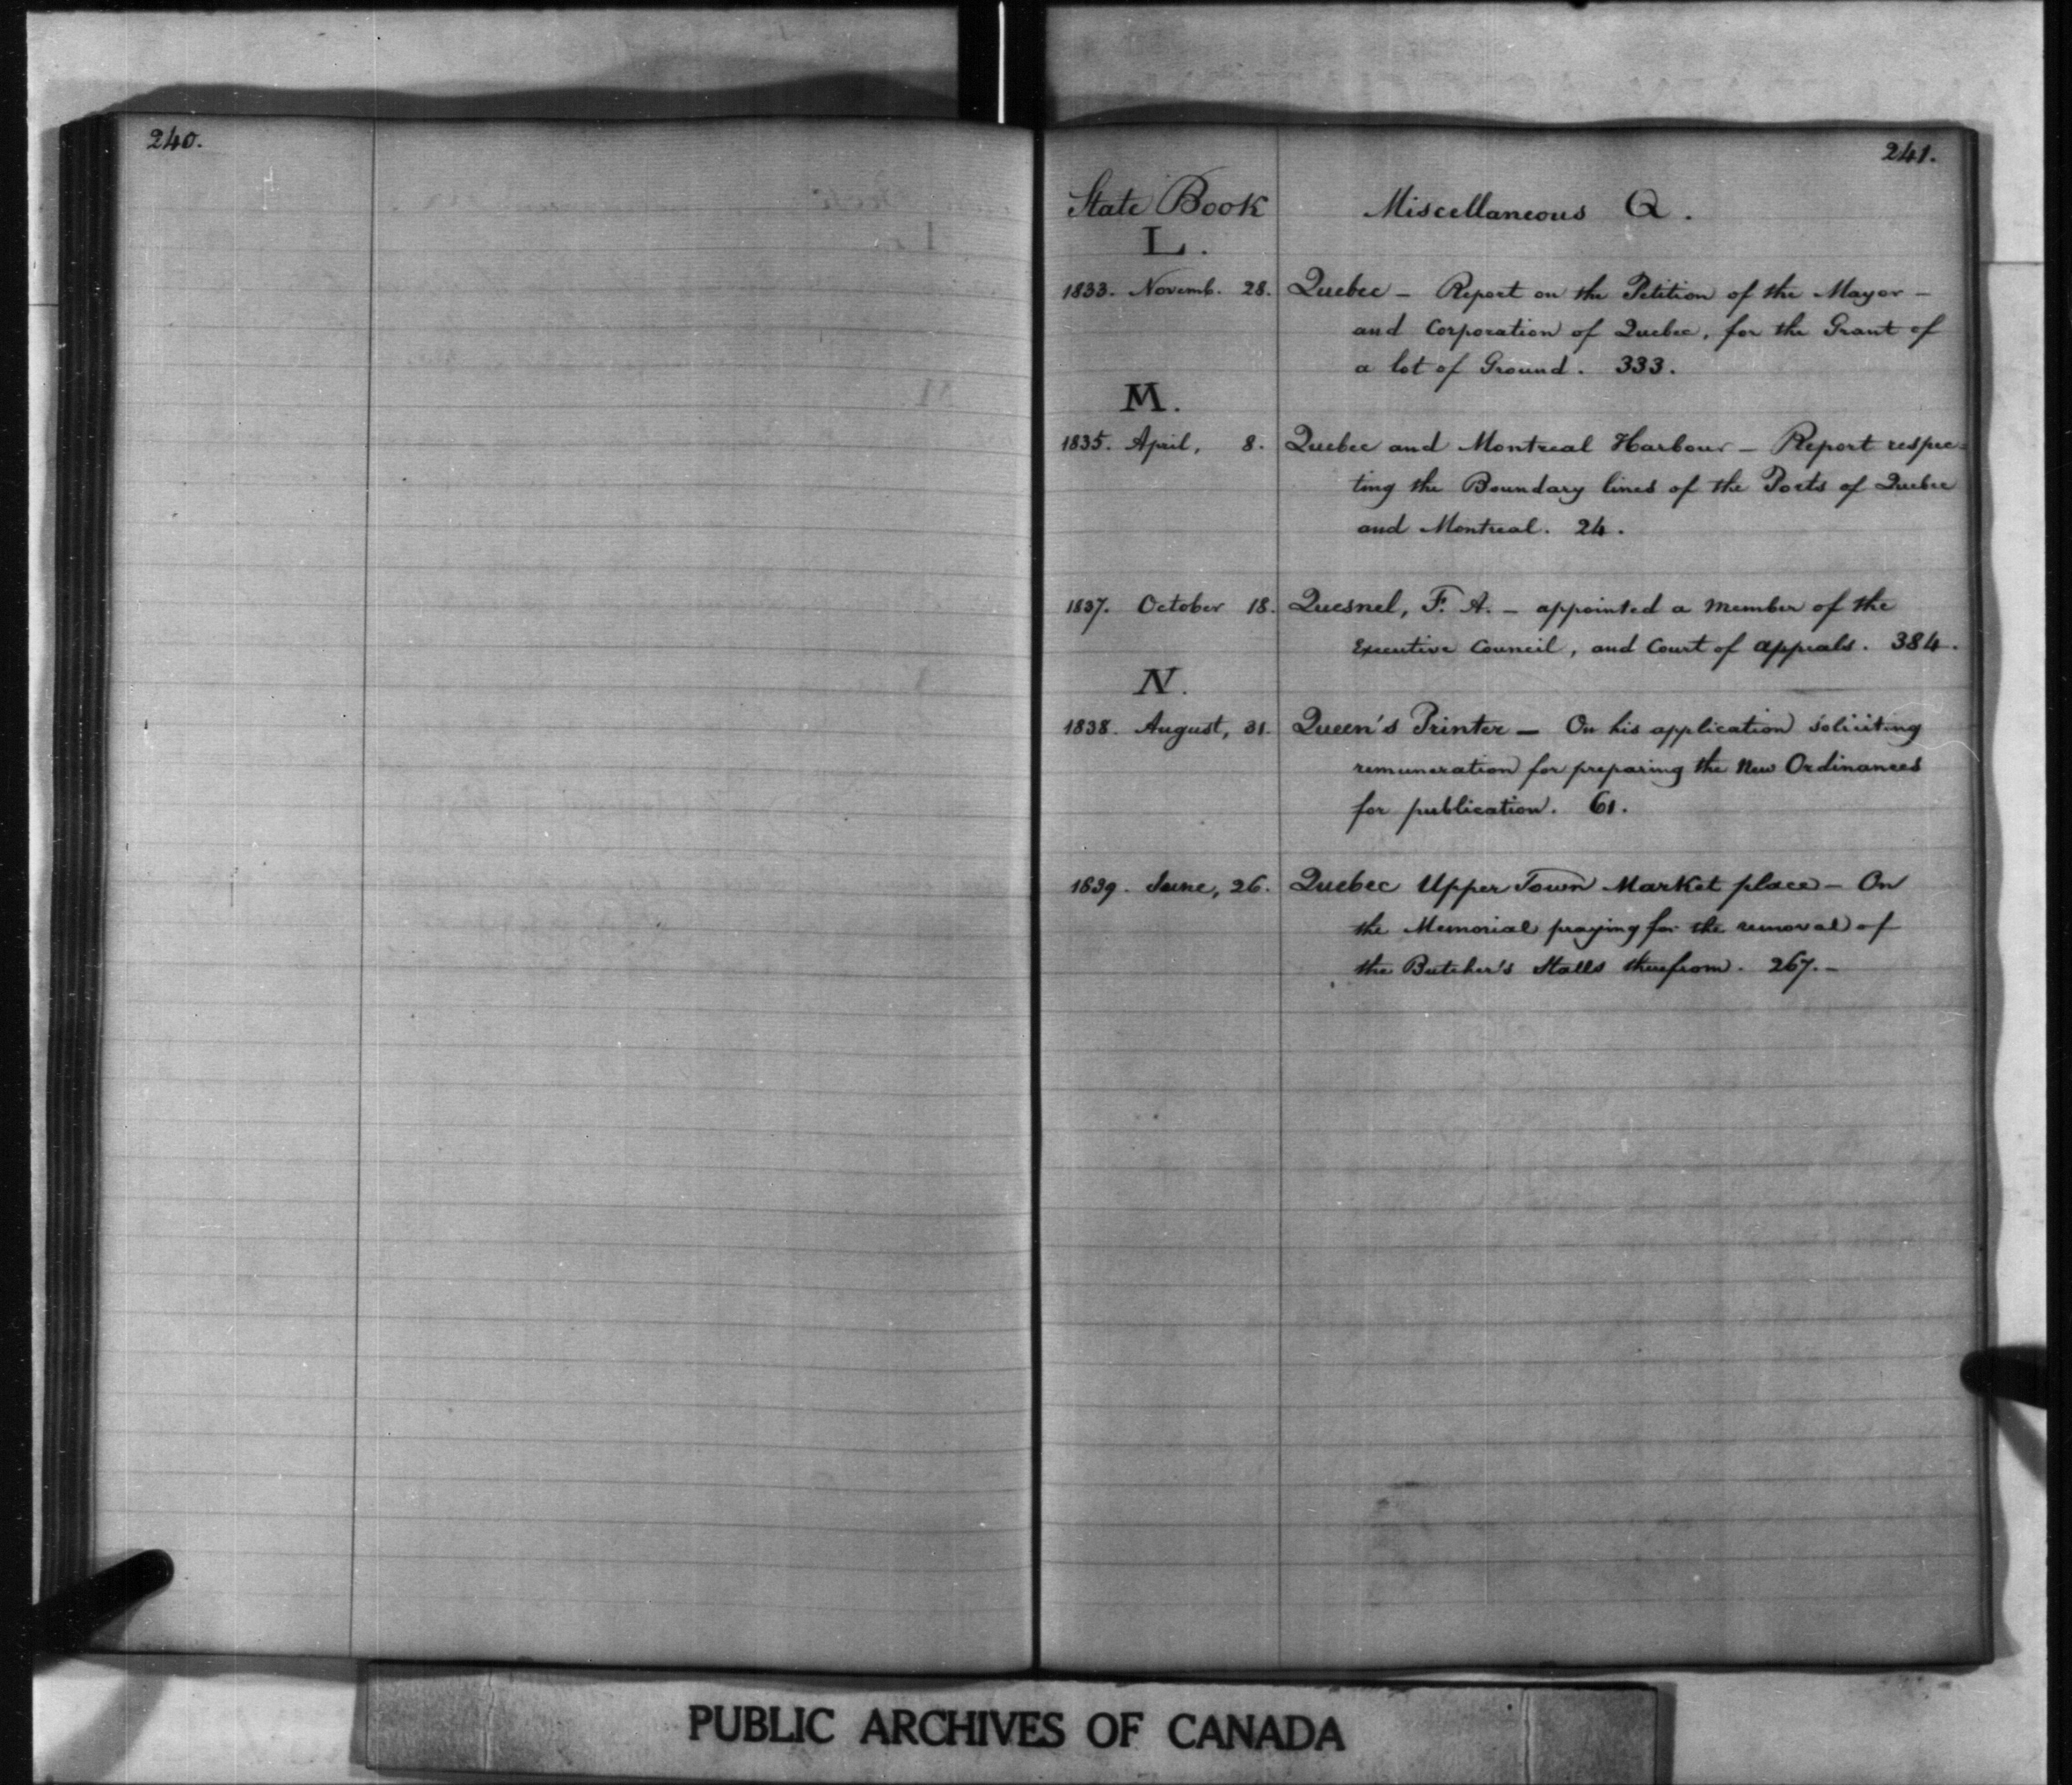 240.
241.
State Book Miscellaneous Q.
L.
1833. Novemb. 28. Quebec - Report on the Petition of the Mayor -
and Corporation of Quebec, for the Grant of
a lot of Ground. 333.
M.
1835. April, 8. Quebec and Montreal Harbour - Report respec-
ting the Boundary lines of the Ports of Quebec
and Montreal. 24.
1837. October 18. Quesnel, F. A. - appointed a member of the
Executive Council, and Court of appeals. 384.
N.
1838. August, 31. Queen's Printer - On his application soliciting
remuneration for preparing the New Ordinances
for publication. 61.
1839. June, 26. Quebec Upper Town Market place - On
the Memorial praying for the removal of
the Butcher's Stalls therefrom. 267.-
PUBLIC ARCHIVES OF CANADA